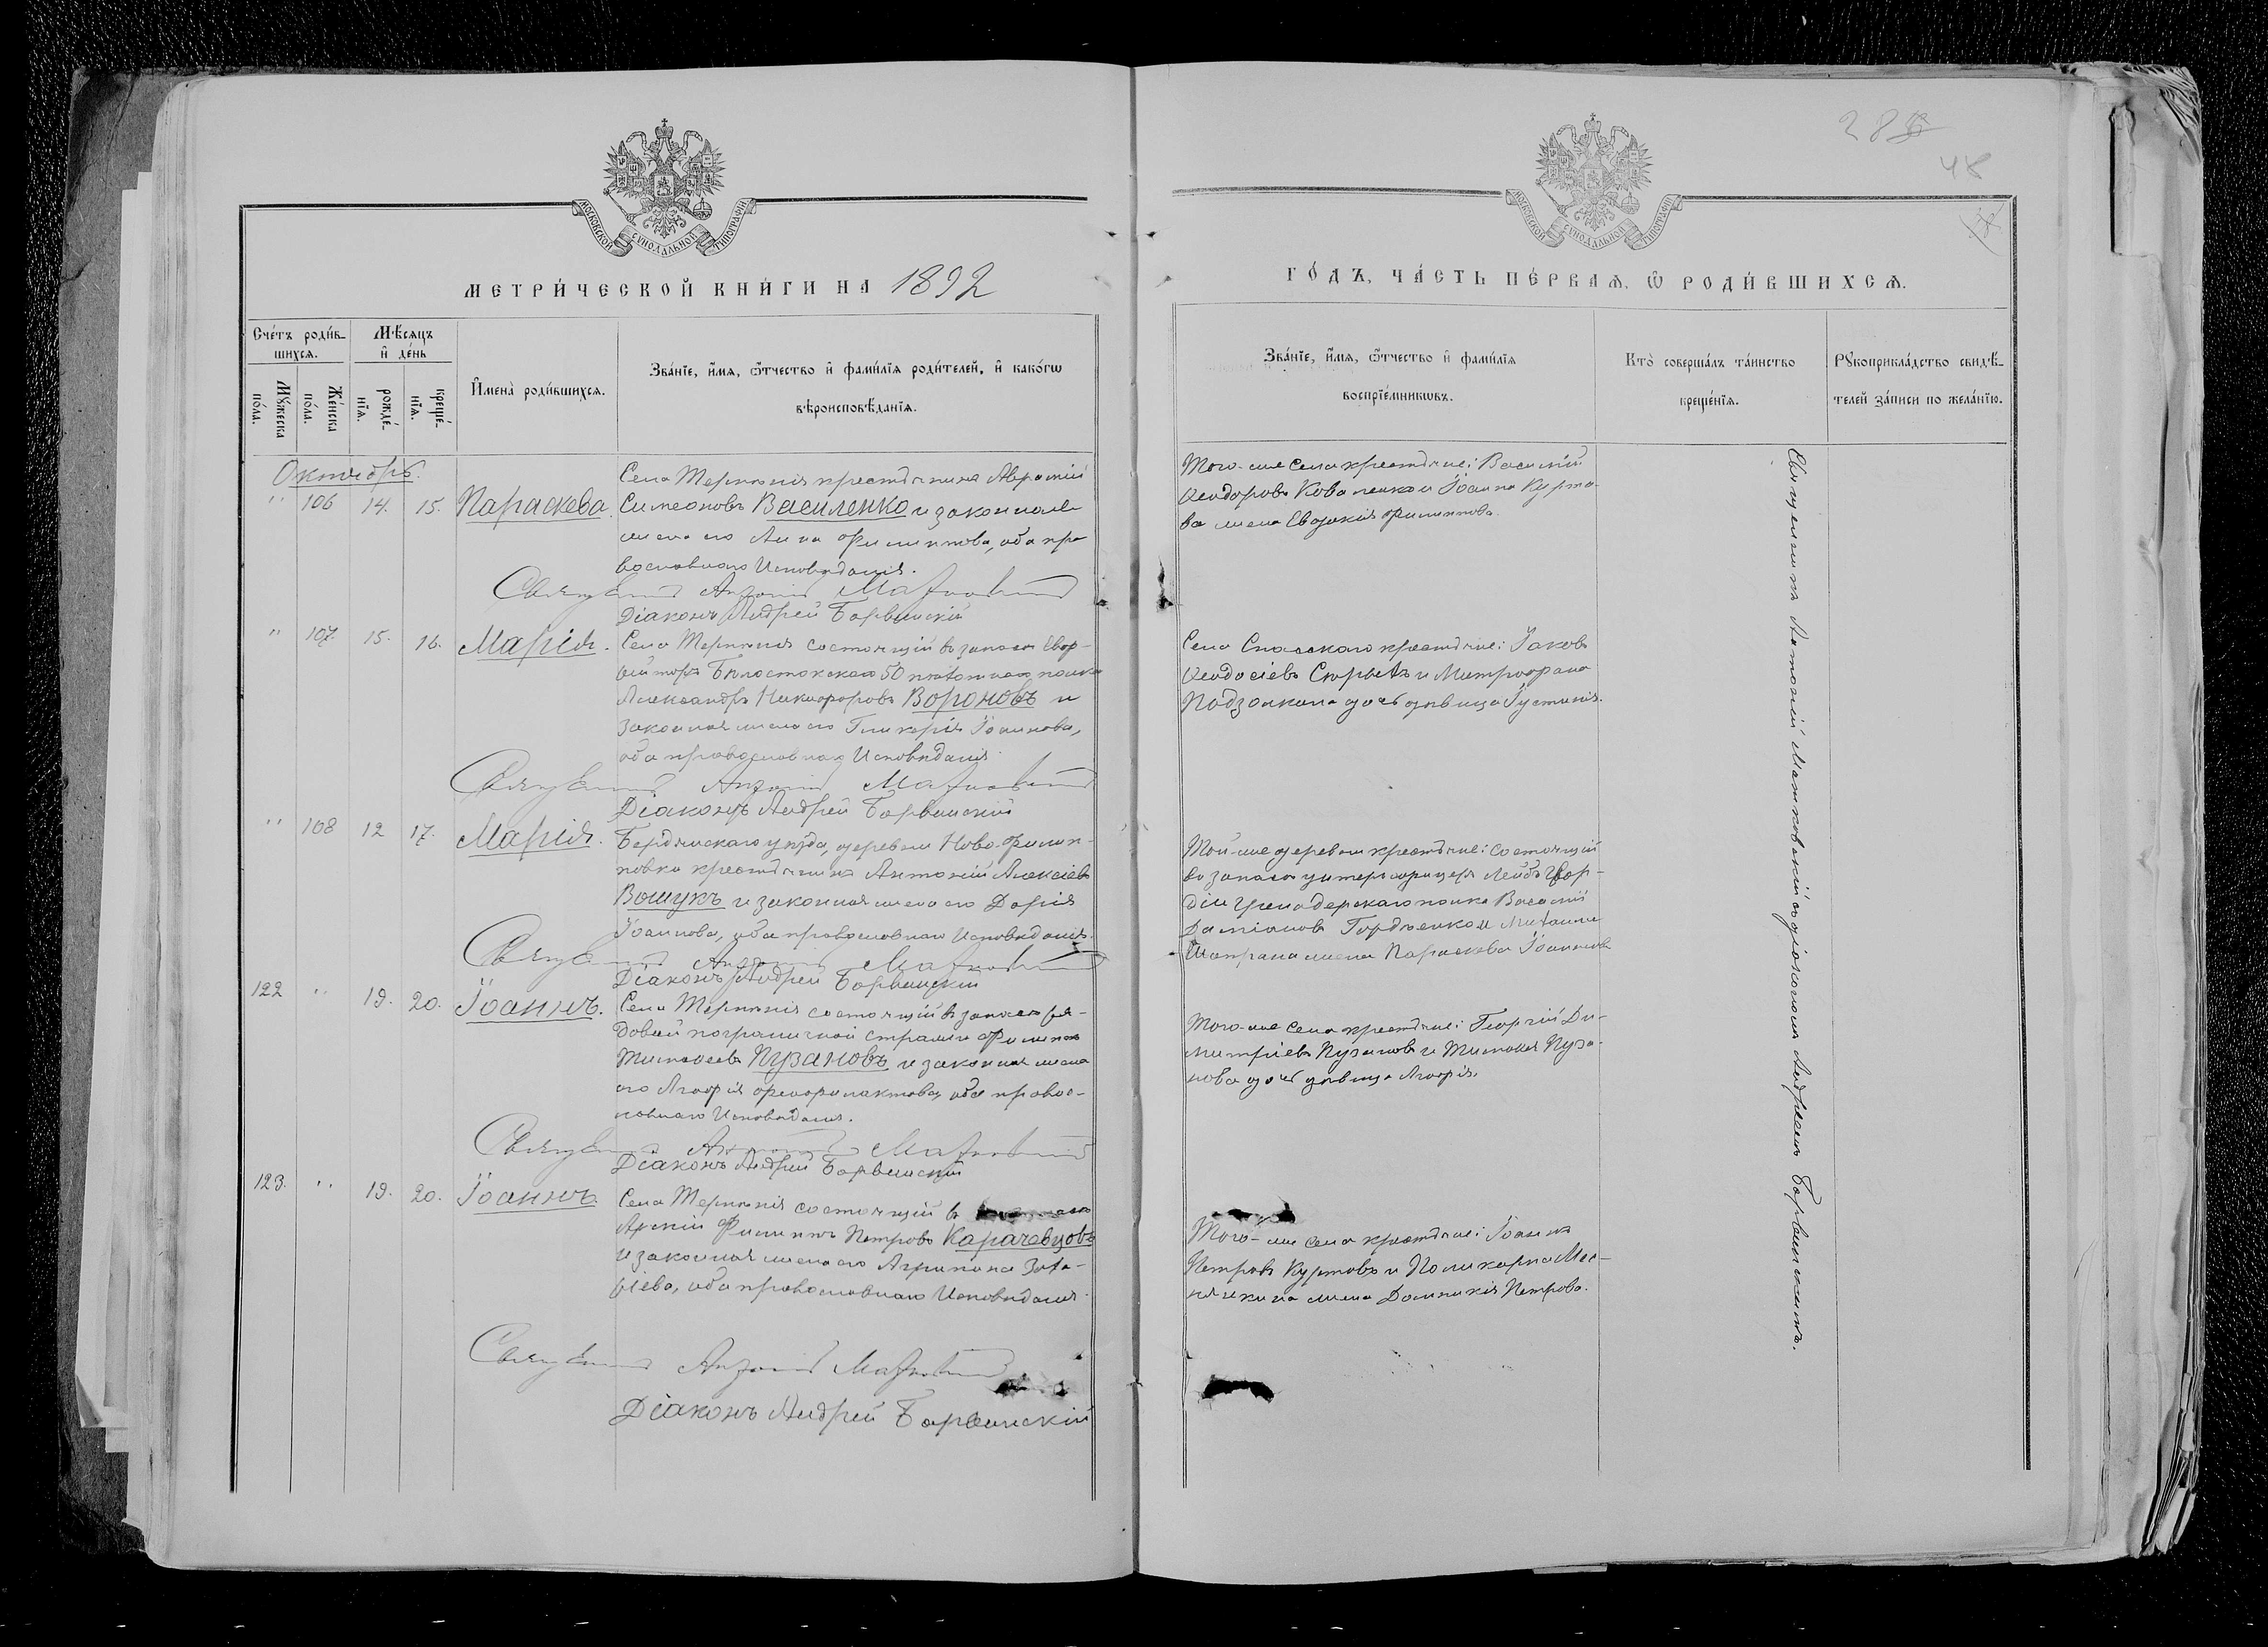 МОСКОВСКОЙ СУНОДАЛЬНОЙ ТИПОГРАФІИ
МЕТРИ́ЧЕСКОЙ КНИ́ГИ НА 1892
Сче́тъ роди́в-
шихсѧ.
Мѣ́сѧцъ
и҆ де́нь
Мꙋ́жеска
по́ла.
Же́нска
по́ла.
рожде́-
нїѧ.
креще́-
нїѧ.
И҆мена̀ роди́вшихсѧ.
Зва́нїе, и҆́мѧ, ѻ҆́тчество и҆ фами́лїѧ роди́телей, и҆ како́гѡ
вѣроисповѣ́данїѧ.
Октябрь.
" 106 14. 15. Параскева.
Села Терпѣнія крестьянинъ
Симеоновъ Василенко и законная
жена его Анна Филиппова, оба пра
вославнаго Исповѣданія.
Священникъ Антоній Матковскій
Діаконъ Андрей Барвинскій
" 107 15. 16. Марія.
Села Терпѣнія состоящій въ запасѣ Ефр-
ейторъ Бѣлостокскаго 50 пѣхотнаго полка
Александръ Никифоровъ Вороновъ и
законная жена его Гликерія Іоаннова,
оба православнаго Исповѣданія
Священникъ Антоній Матковскій
Діаконъ Андрей Барвинскій
" 108 12 17. Марія.
Бердянскаго уѣзда, деревни Ново-Филип-
повки крестьянинъ Антоній Алексіевъ
Вошукъ и законная жена его Дарія
Іоаннова, оба православнаго Исповѣданія.
Священникъ Антоній Матковскій
Діаконъ Андрей Барвинскій
122 " 19. 20. Іоаннъ.
Села Терпѣнія состоящій въ запасѣ ря-
довой пограничной стражи Филиппъ
Тимофеевъ Пузановъ и законная жена
его Агафія Феофилактова, оба правос-
лавнаго Исповѣданія.
Священникъ Антоній Матковскій
Діаконъ Андрей Барвинскій
123. " 19. 20. Іоаннъ.
Села Терпѣнія состоящій въ
Филиппъ Петровъ Карачевцовъ
и законная жена его Агрипина Заха-
ріева, оба православнаго Исповѣданія.
Священникъ Антоній Матковскій
Діаконъ Андрей Барвинскій
48
МОСКОВСКОЙ СУНОДАЛЬНОЙ ТИПОГРАФІИ
ГО́ДЪ, ЧА́СТЬ ПЕ́РВАѦ, Ѡ҆ РОДИ́ВШИХСѦ.
Зва́нїе, и҆́мѧ, ѻ҆́тчество и҆ фами́лїѧ
воспрїе́мникѡвъ.
Кто̀ соверша́лъ та́инство
креще́нїѧ.
Рꙋкоприкла́дство свидѣ́-
телей за́писи по жела́нїю.
Того-же села крестьяне: Василій
Феодоровъ Коваленко и Іоанна Курто-
ва жена Евдокія Филиппова.
Села Спасскаго крестьяне: Іаковъ
Феодосіевъ и Митрофана
дочь дѣвица Іустинія.
Той-же деревни крестьяне: состоящій
въ запасѣ унтеръ-офицеръ Лейбъ Гвар-
діи Гренадерскаго полка Василій
Даміановъ Гордѣенко и Михаила
Шапрана жена Параскева Іоаннова
Того-же села крестьяне: Георгій Ди-
митріевъ Пузановъ и Тимофея Пуза-
нова дочь дѣвица Агафія.
Того-же села крестьяне: Іоаннъ
Петровъ Куртовъ и Поликарпа
жена Домникія Петрова.
Священникъ Антоній Матковскій съ діакономъ Андреемъ Барвинскимъ.